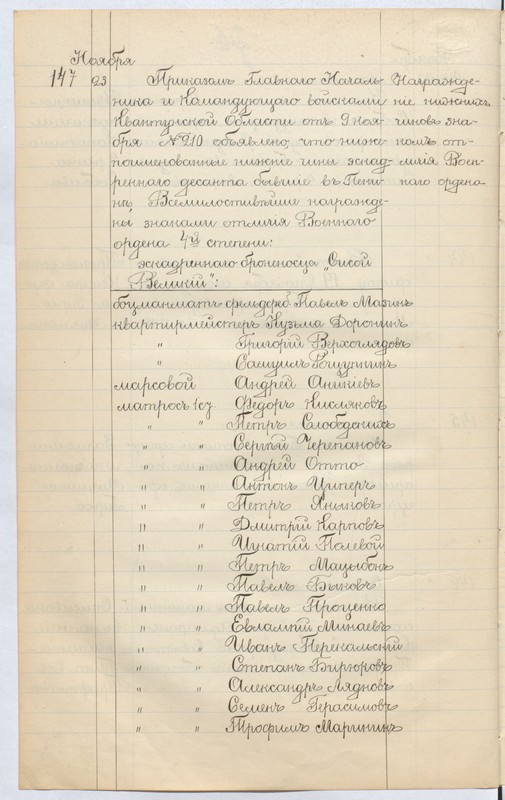 Ноября
147 23 Приказомъ Главнаго Началь-
ника и Командующаго войсками
Квантунской Области отъ 9 ноя-
бря № 210 объявлено, что ниже-
поименованные нижніе чины эскад-
реннаго десанта бывшіе въ Пеки-
нѣ, Всемилостивѣйше награжде-
ны знаками отличія Военнаго
ордена 4й степени:
Награжде-
ніе нижнихъ
чиновъ зна-
комъ от-
личія Воен-
наго ордена
эскадреннаго броненосца „Сисой
Великій":
боцманматъ фельдфеб. Павелъ Мазинъ
квартирмейстеръ Кузьма Доронинъ
" Григорій Верхоглядовъ
" Самуилъ
марсовой Андрей Аникіевъ
матросъ 1 ст Федоръ Кисляковъ
" " Петръ Слободскихъ
" " Сергѣй Черепановъ
" " Андрей Отто
" " Антонъ Циперъ
" " Петръ Яныковъ
" " Дмитрій Карповъ
" " Игнатій Полевой
" " Петръ Мацыбокъ
" " Павелъ Быковъ
" " Павелъ Проценко
" " Евлампій Минаевъ
" " Иванъ Перекальскій
" " Степанъ Бирюровъ
" " Александръ Лядновъ
" " Семенъ Герасимовъ
" " Трофимъ Маринкинъ